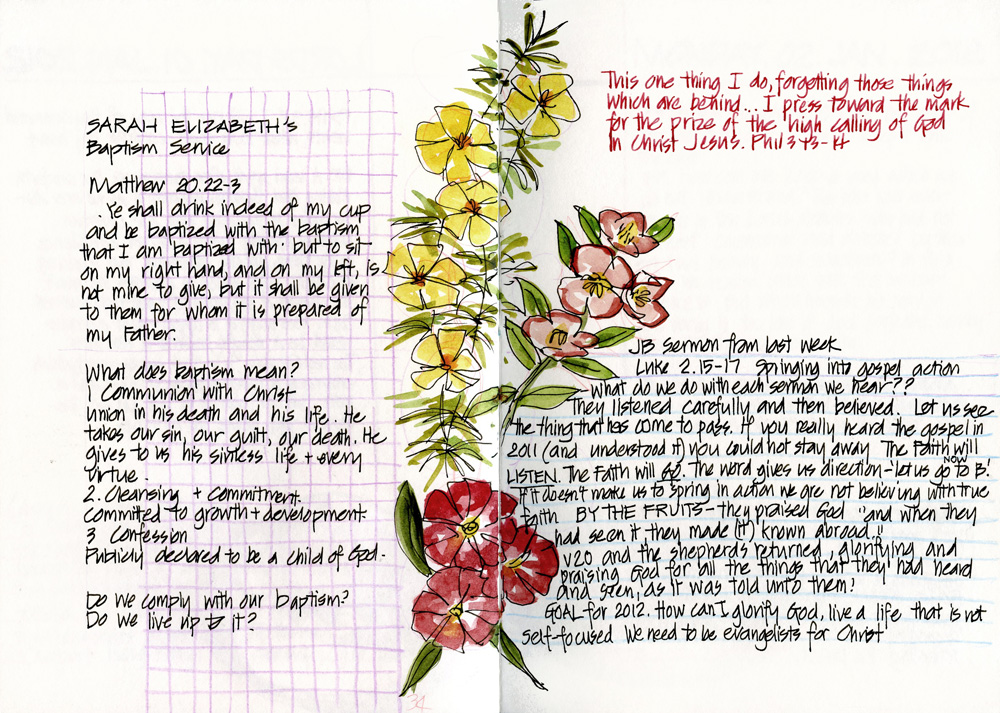 SARAH ELIZABETH's
Baptism Service
Matthew 20.22-3
. Ye shall drink indeed of my cup
and be baptized with the baptism
that I am baptized with: but to sit
on my right hand, and on my left, is
not mine to give, but it shall be given
to them for whom it is prepared of
my Father.
What does baptism mean?
1 Communion with Christ
union in his death and his life. He
takes our sin, our guilt, our death. He
gives to us his sinless life + every
virtue.
2. Cleansing + Commitment.
Committed to growth + development.
3 Confession
Publicly declared to be a child of God.
Do we comply with our baptism?
Do we live up to it?
34
This one thing I do, forgetting those things
which are behind... I press toward the mark
for the prize of the high calling of God
in Christ Jesus. Phil 3 v 13-14
JB Sermon from last week
Luke 2.15-17 Springing into gospel action
- what do we do with each sermon we hear??
They listened carefully and then believed. Let us see
the thing that has come to pass. If you really heard the gospel in
2011 (and understood it) you could not stay away The Faith will
LISTEN. The Faith will GO. The word gives us direction - let us go NOW to B!
If it doesn't make us to spring in action we are not believing with true
faith BY THE FRUITS - they praised God "and when they
had seen it, they made (it) known abroad."
v20 and the shepherds returned, glorifying and
praising God for all the things that they had heard
and seen, as it was told unto them!
GOAL for 2012. How can I glorify God, live a life that is not
self-focused We need to be evangelists for Christ